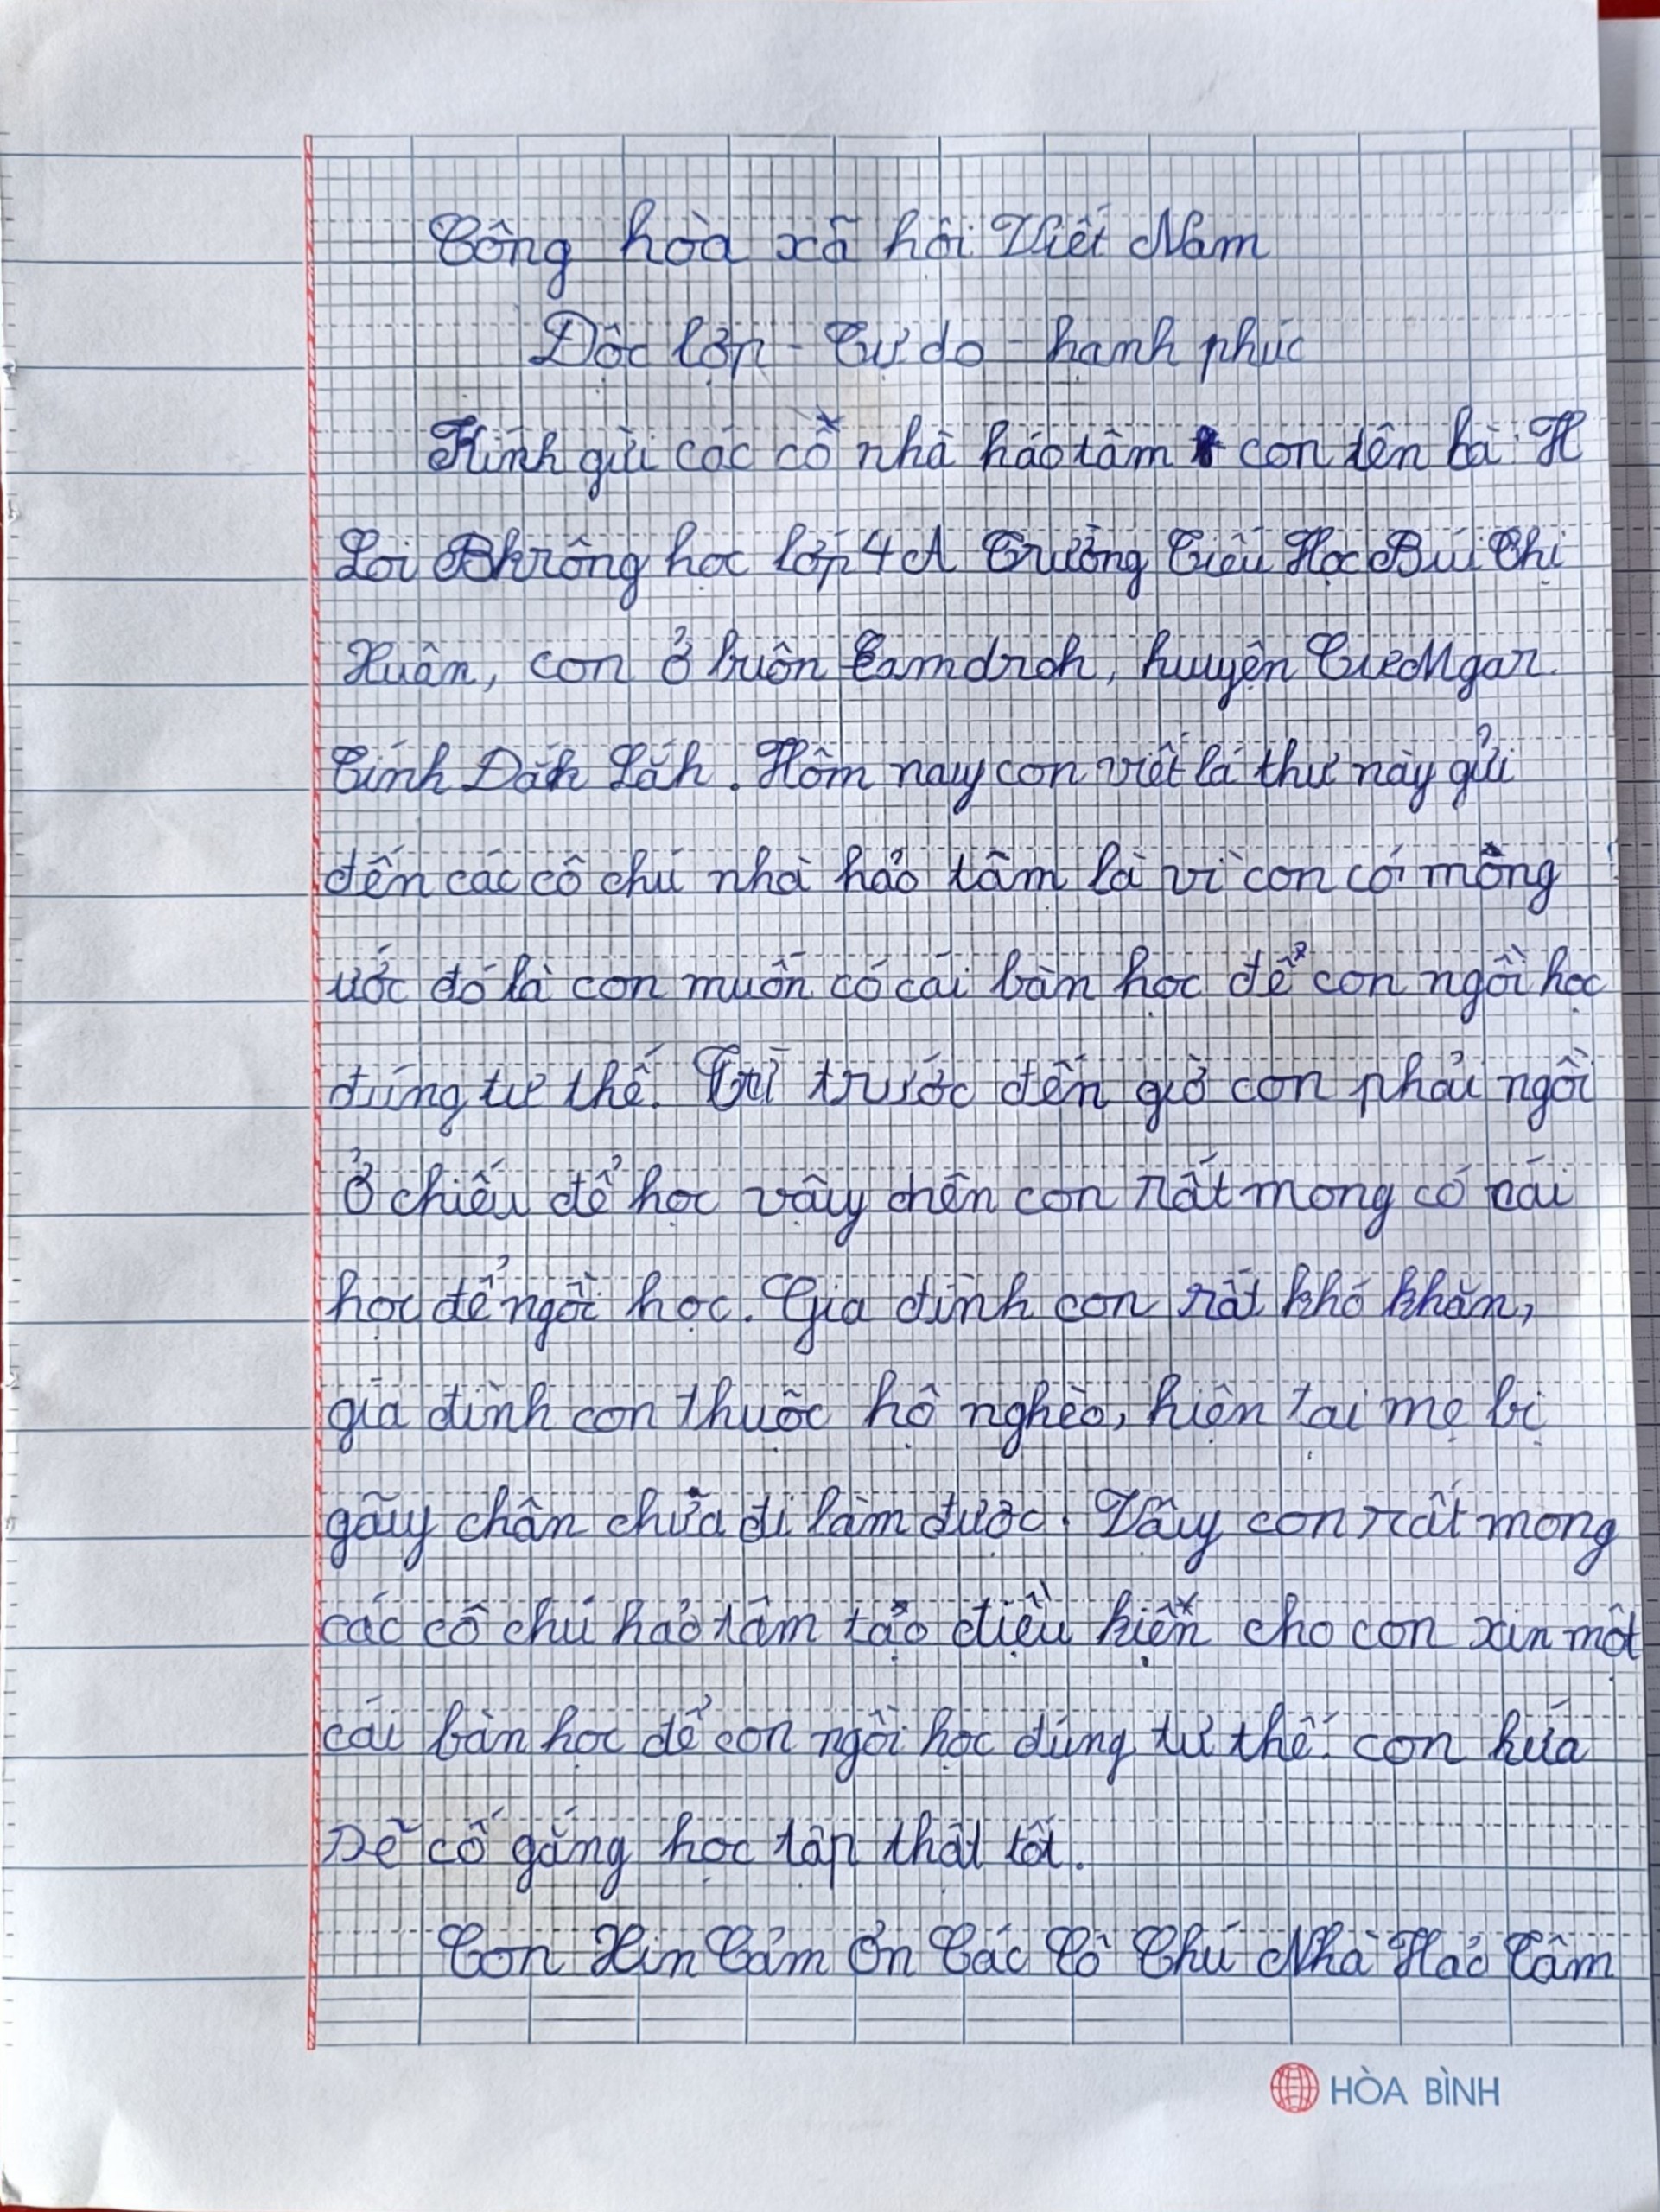 Công hòa xã hôi Việt Nam
Độc lợp - Tự do - hạnh phúc
Kính gửi các cô nhà hảo tâm con tên là: H
Loi Bkrông học lớp 4A Trường Tiểu Học Bùi Thị
Xuân, con ở buôn Eamdroh, huyện CưMgar.
Tỉnh Đắk Lắk. Hôm nay con viết lá thư này gửi
đến các cô chú nhà hảo tâm là vì con có mông
ước đó là con muốn có cái bàn học để con ngồi học
đúng tư thế. Từ trước đến giờ con phải ngồi
Ở chiếu để học vậy nên con rất mong có cái
học để ngồi học. Gia đình con rất khó khăn,
gia đình con thuộc hộ nghèo, hiện tại mẹ bị
gãy chân chưa đi làm được. Vậy con rất mong
các cô chú hảo tâm tạo điều kiện cho con xin một
cái bàn học để con ngồi học đúng tư thế. con hứa
Dẽ cố gắng học tập thật tốt.
Con Xin Cảm Ơn Các Cô Chú Nhà Hảo Tâm
HÒA BÌNH